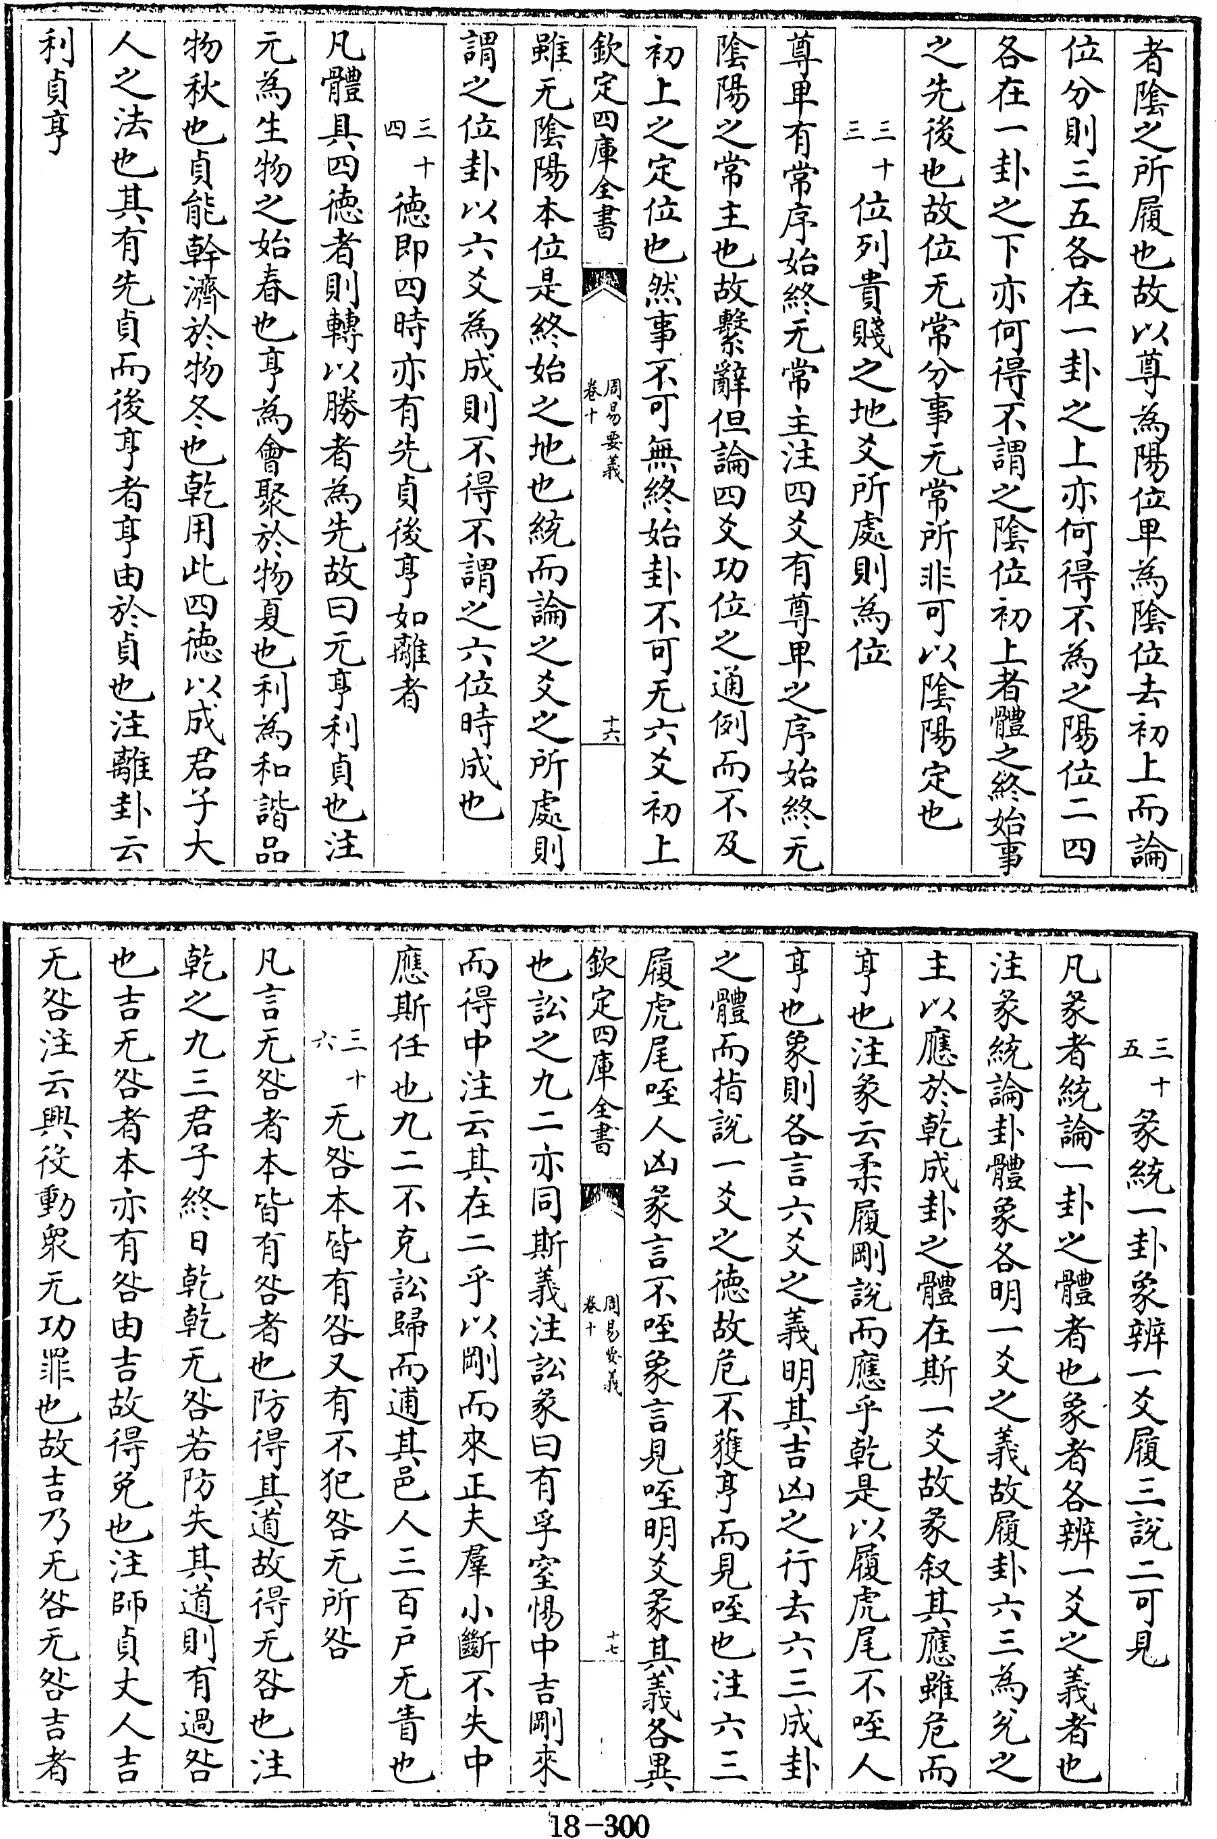 者陰之所履也故以尊為陽位卑為陰位去初上而論
位分則三五各在一卦之上亦何得不為之陽位二四
各在一卦之下亦何得不謂之陰位初上者體之終始事
之先後也故位无常分事无常所非可以陰陽定也
三十三 位列貴賤之地爻所處則為位
尊卑有常序始終无常主注四爻有尊卑之序始終无
陰陽之常主也故繫辭但論四爻功位之通例而不及
初上之定位也然事不可無終始卦不可无六爻初上
欽定四庫全書 周易要義 卷十 十六
雖无陰陽本位是終始之地也統而論之爻之所處則
謂之位卦以六爻為成則不得不謂之六位時成也
三十四 德即四時亦有先貞後亨如離者
凡體具四德者則轉以勝者為先故曰元亨利貞也注
元為生物之始春也亨為會聚於物夏也利為和諧品
物秋也貞能幹濟於物冬也乾用此四德以成君子大
人之法也其有先貞而後亨者亨由於貞也注離卦云
利貞亨
三十五 彖統一卦象辨一爻履三說二可見
凡彖者統論一卦之體者也象者各辨一爻之義者也
注彖統論卦體象各明一爻之義故履卦六三為兌之
主以應於乾成卦之體在斯一爻故彖叙其應雖危而
亨也注彖云柔履剛說而應乎乾是以履虎尾不咥人
亨也象則各言六爻之義明其吉凶之行去六三成卦
之體而指說一爻之德故危不獲亨而見咥也注六三
履虎尾咥人凶彖言不咥象言見咥明爻彖其義各異
欽定四庫全書 周易要義 卷十 十七
也訟之九二亦同斯義注訟彖曰有孚窒惕中吉剛來
而得中注云其在二乎以剛而來正夫羣小斷不失中
應斯任也九二不克訟歸而逋其邑人三百户无眚也
三十六 无咎本皆有咎又有不犯咎无所咎
凡言无咎者本皆有咎者也防得其道故得无咎也注
乾之九三君子終日乾乾无咎若防失其道則有過咎
也吉无咎者本亦有咎由吉故得免也注師貞丈人吉
无咎注云興役動衆无功罪也故吉乃无咎无咎吉者
18-300